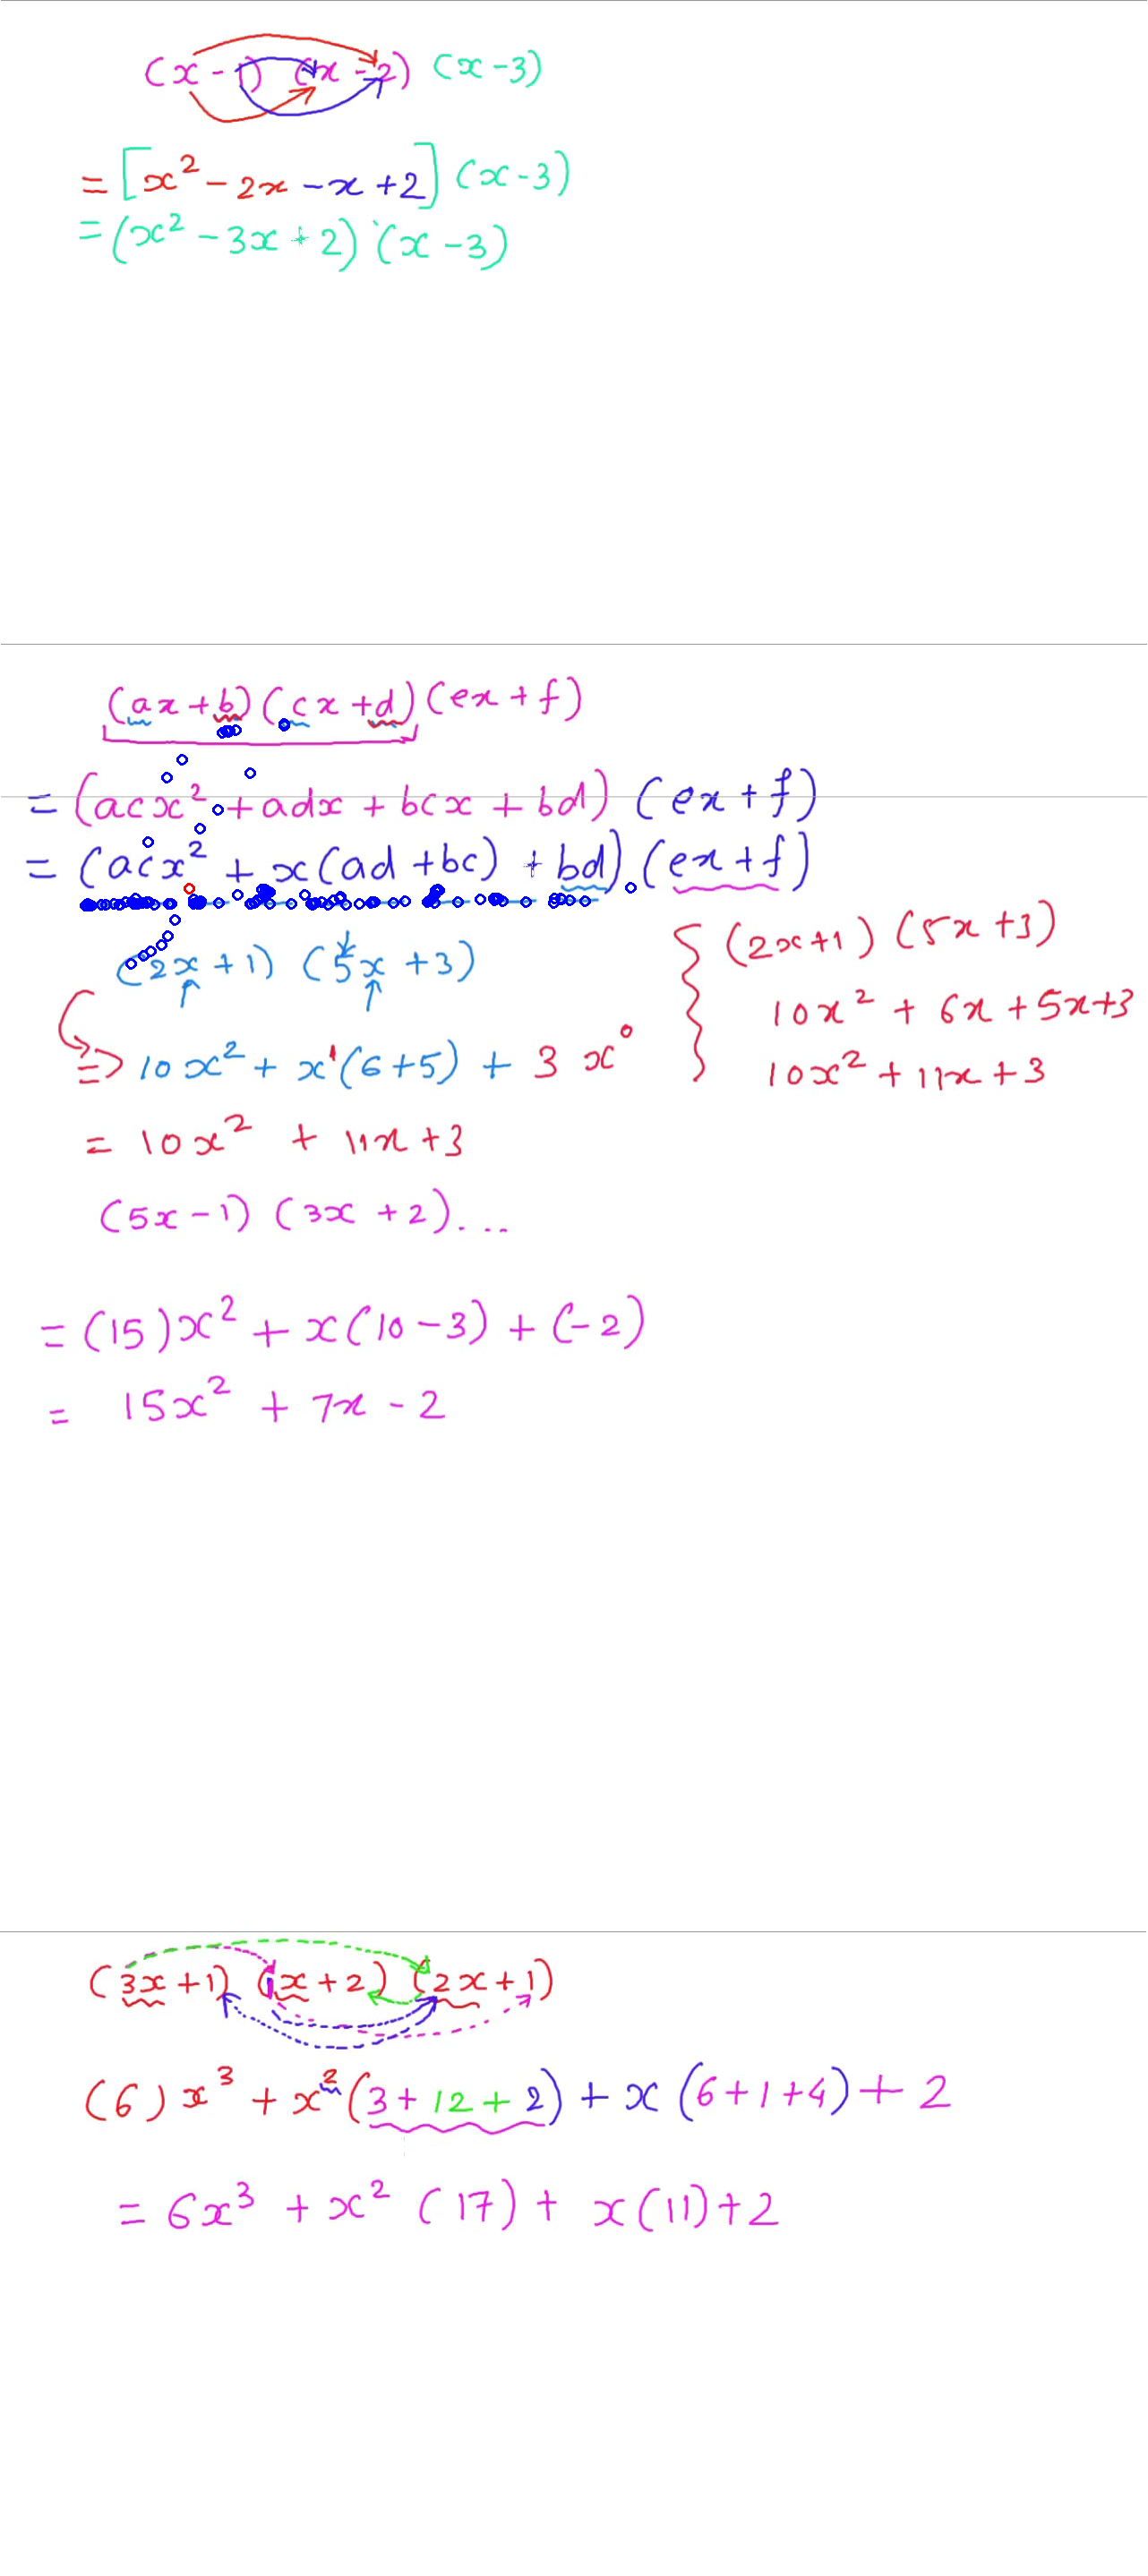 (x - 1) (x - 2) (x - 3)
= [x² - 2x - x + 2] (x - 3)
= (x² - 3x + 2) (x - 3)
(ax + b) (cx + d) (ex + f)
= (acx² + adx + bcx + bd) (ex + f)
= (acx² + x(ad + bc) + bd) (ex + f)
(2x + 1) (5x + 3)
⇒ 10x² + x¹(6+5) + 3 x⁰
= 10x² + 11x + 3
(2x+1) (5x+3)
10x² + 6x + 5x + 3
10x² + 11x + 3
(5x - 1) (3x + 2)...
= (15)x² + x(10 - 3) + (-2)
= 15x² + 7x - 2
(3x + 1) (x + 2) (2x + 1)
(6) x³ + x² (3 + 12 + 2) + x (6+1+4) + 2
= 6x³ + x² (17) + x(11) + 2